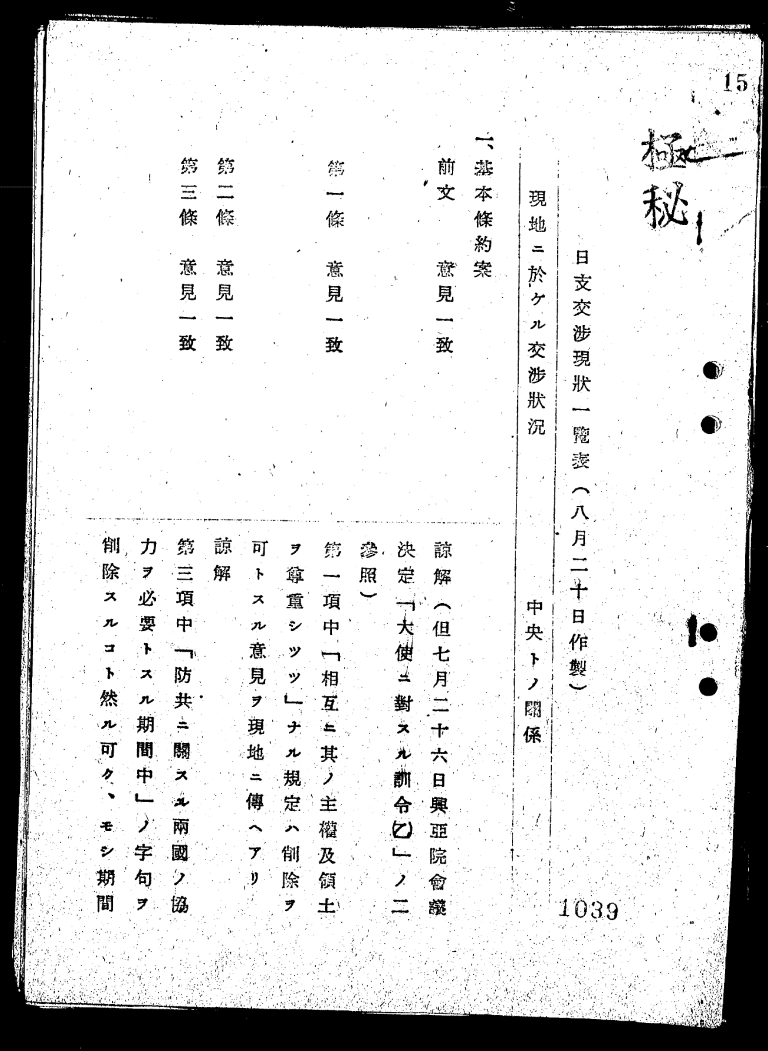 15
極秘
日支交渉現狀一覽表(八月二十日作製)
現地ニ於ケル交渉狀況
中央トノ關係
一、基本條約案
前文 意見一致
諒解(但七月二十六日興亞院會議
決定「大使ニ對スル訓令(乙)」ノ二
參照)
第一條 意見一致
第一項中「相互ニ其ノ主權及領土
ヲ尊重シツツ」ナル規定ハ削除ヲ
可トスル意見ヲ現地ニ傳ヘアリ
第二條 意見一致
諒解
第三條 意見一致
第三項中「防共ニ關スル兩國ノ協
力ヲ必要トスル期間中」ノ字句ヲ
削除スルコト然ル可ク、モシ期間
1039